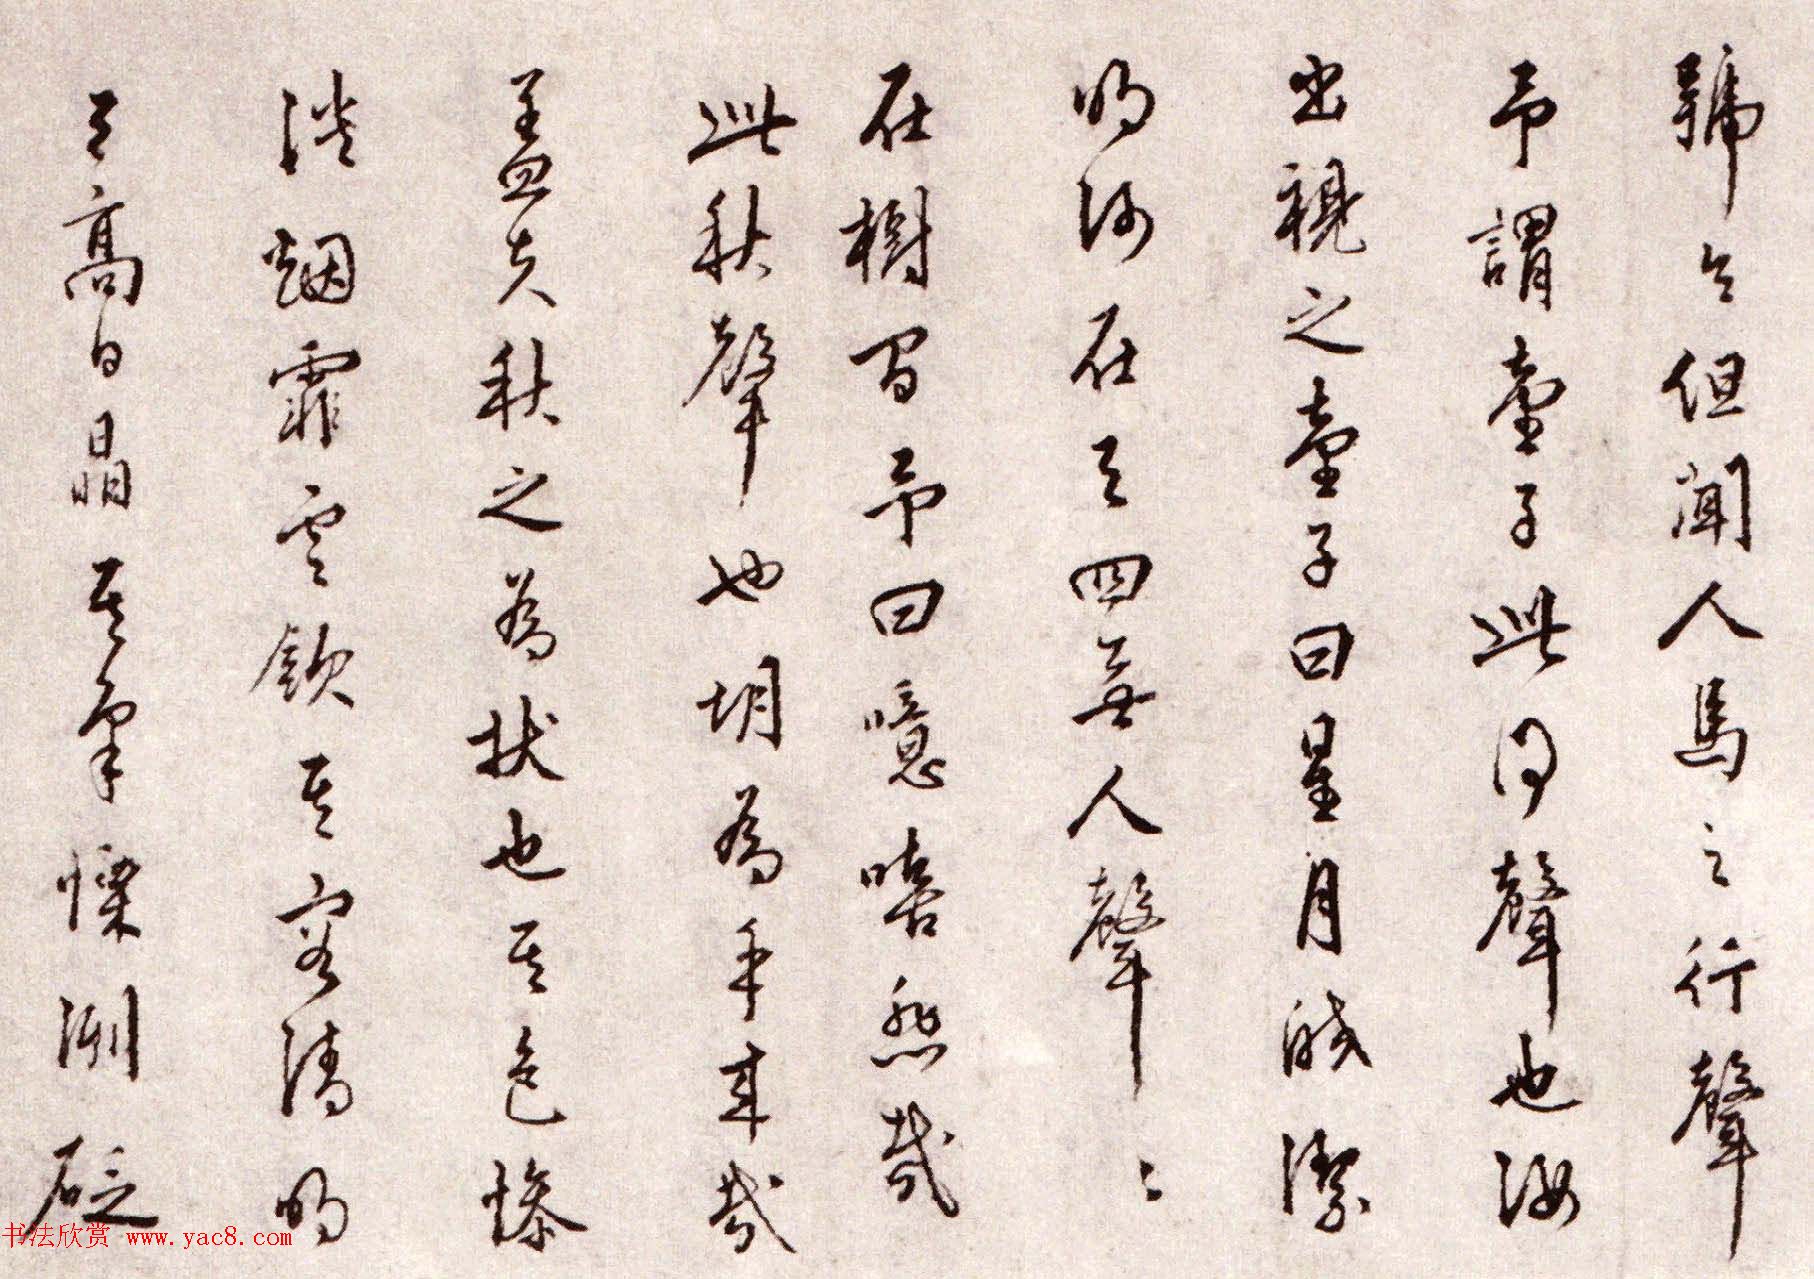 號令但聞人馬之行聲
予謂童子此何聲也汝
出視之童子曰星月皎潔
明河在天四無人聲〻
在樹間予曰噫嘻悲哉
此秋聲也胡為乎来哉
盖夫秋之為状也其色惨
淡烟霏雲歛其容清明
天高日晶其氣慄冽砭
书法欣赏 www.yac8.com